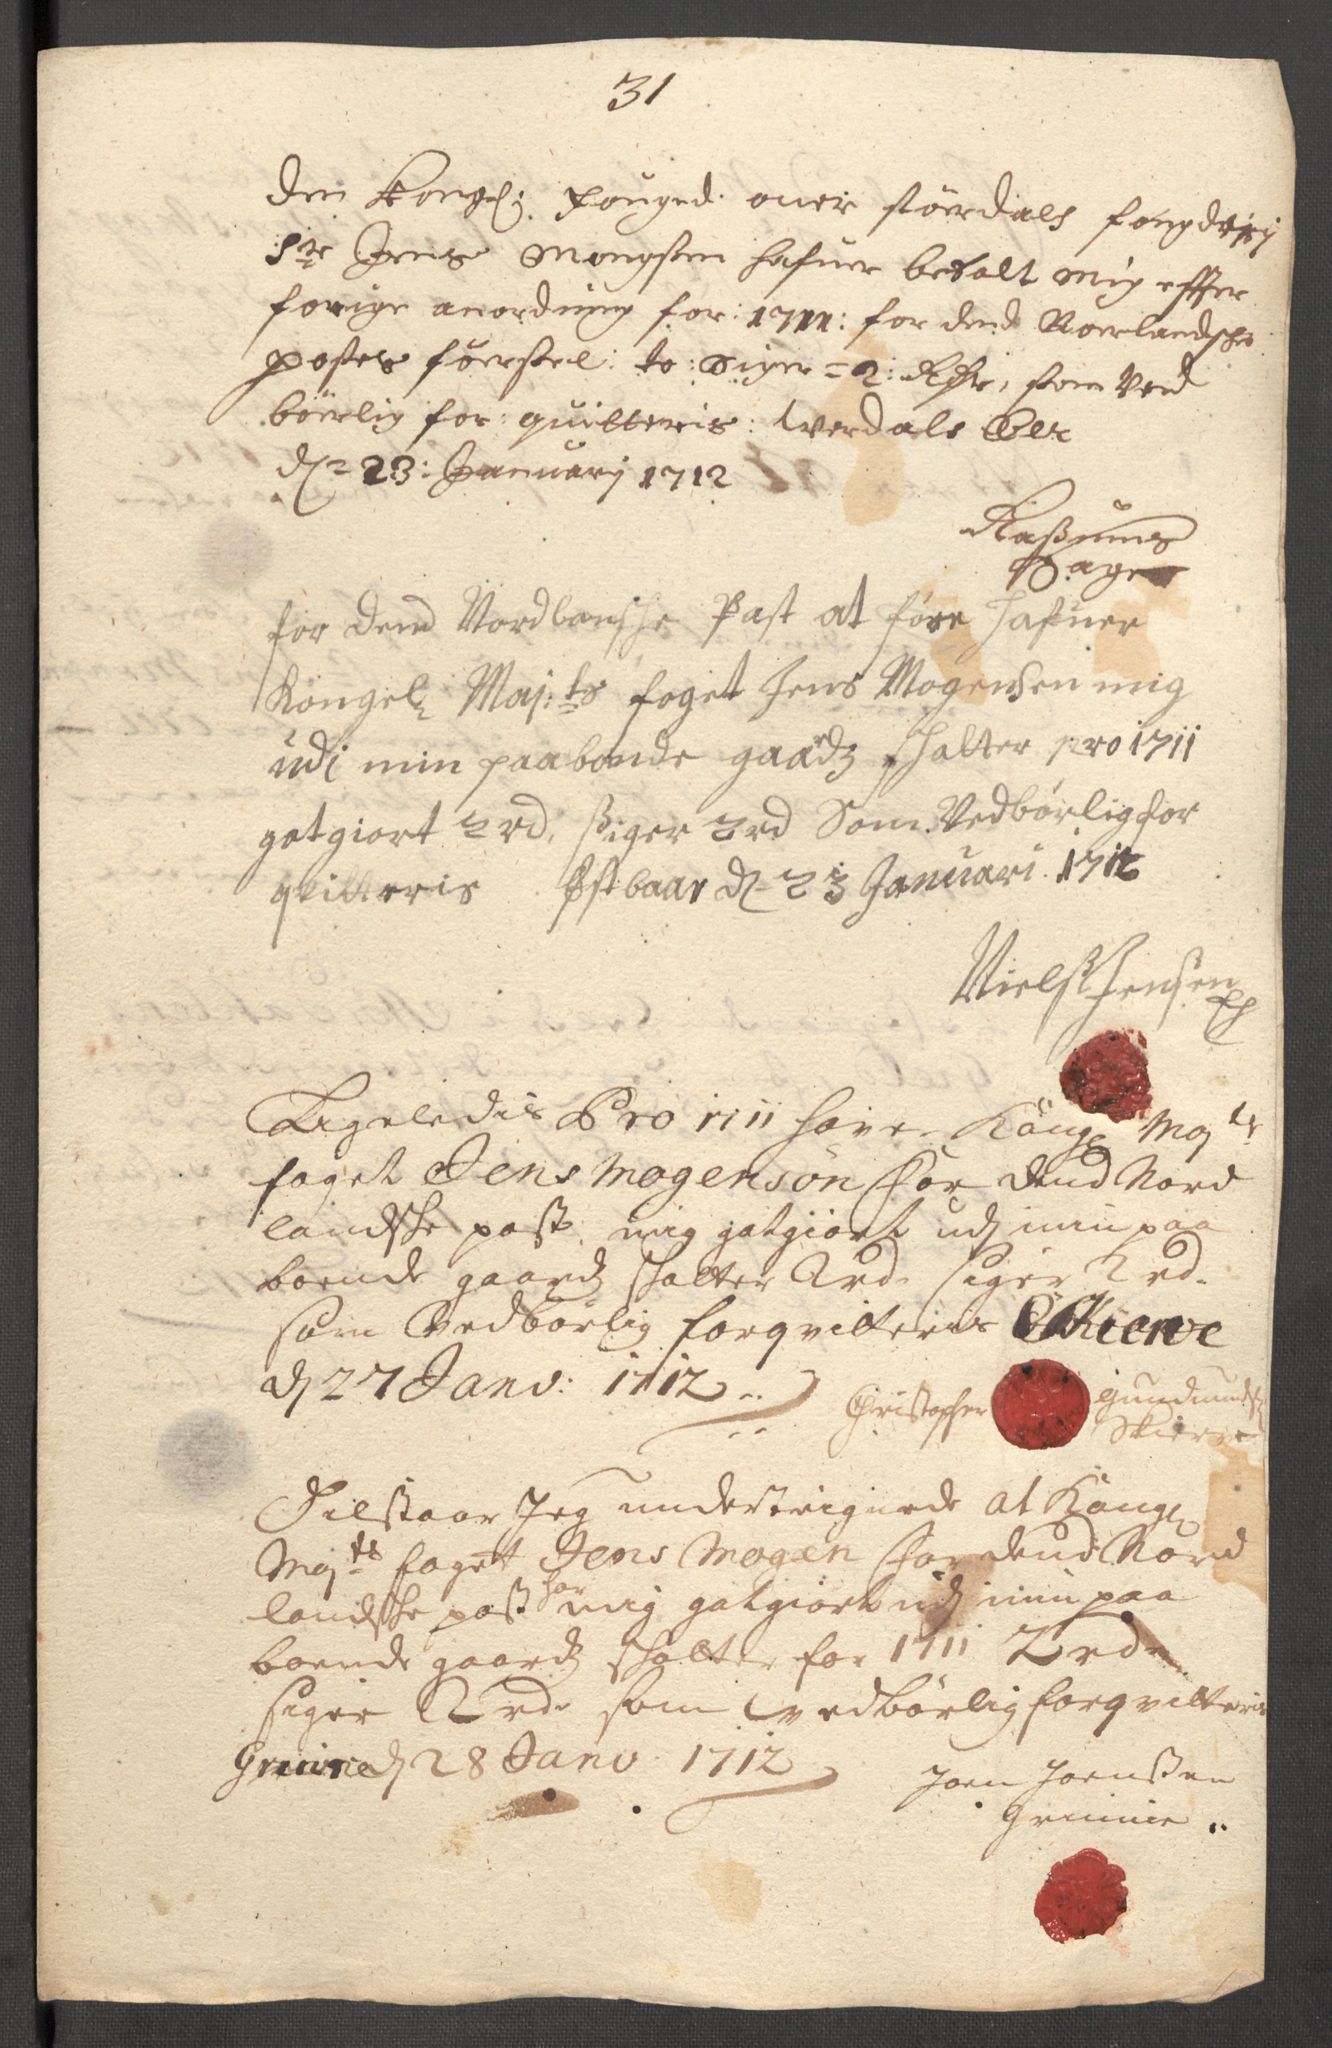 31
den Kongl: fouged over stördals fougderj
Sr Jens Mongsen hafuer betalt mig efter
forige anordning for: 1711: for dend Norlandsche
postes föersel: to: siger = 2: Rdr, som ved
börlig for: quitteris: Werdals Øer
d = 23: Januarj 1712
Raßmus
Hager
for dend Nordlansche Past at före hafuer
Köngel Maj:ts foget Jens Mogensen mig
udi min paaboende gaardz schatter pro 1711
gotgiort 2 rd, siger 2 rd Som Vedbørlig for
qvitteris Østbaar d = 23 Januari 1712
Niels Jensen
Ligeledis Pro 1711 haver Köngl Maj ts
foget Jens Mogensön for dend Nord
landsche post mig gotgiort udj min paa
boende gaardz schatter 2 rd. siger 2 rd.
som vedbørlig forqvitteris Skierve
d 27 Janv: 1712
Christopher Gundmunds
Skierve
Tilstaar Jeg underteignede at Köngl
Maj ts foget Jens Mogen for dend Nord
landsche post har mig gotgiort udj min paa
boende gaardz schatter for 1711 2 rdr
siger 2 rd. som vedbørlig forqvitteris
Grinne d 28 Janv 1712
Joen Joenßen
Grinnie